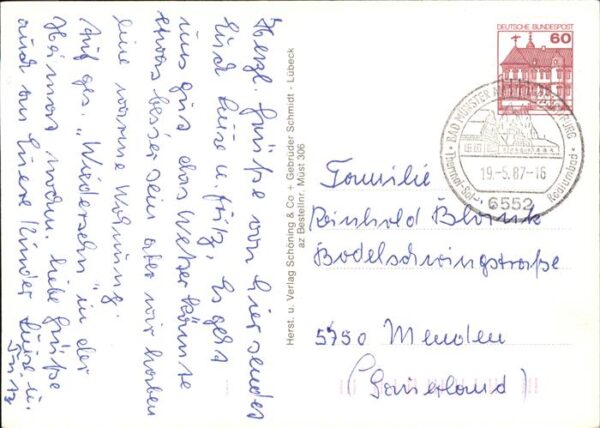 Herzl. Grüße von hier sendet
Euch Luise u. Fritz, Es geht
uns gut das Wetter könnte
etwas besser sein aber wir haben
eine warme Wohnung.
Auf ges. "Wiedersehn" in der
Heimat noch. liebe Grüße
auch an Eure Kinder Luise u.
Fritz
Herst. u. Verlag Schöning & Co + Gebrüder Schmidt - Lübeck
az Bestellnr. Müst 306
DEUTSCHE BUNDESPOST
60
BAD MÜNSTER AM
19.-5.87-16
6552
Thermal-Sol-
Radiumbad
Familie
Reinhold
Bodelschwingstraße
5750 Menden
(Sauerland)